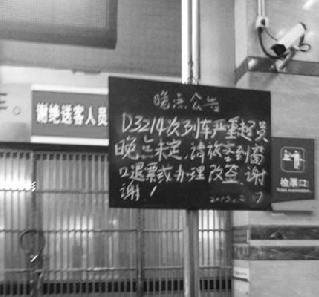 谢绝送客人员
晚点公告
D3214次列车严重超员
晚点未定，请旅客到窗
口退票或办理改签，谢
谢！
检票口